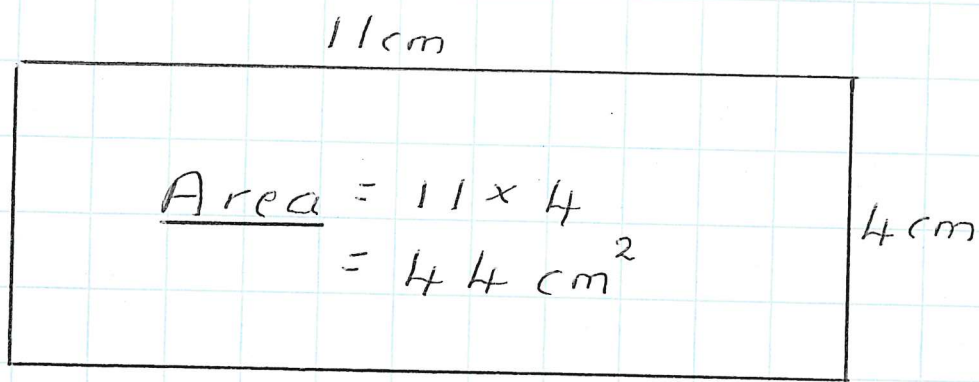 11cm
Area = 11 × 4
= 44 cm²
4cm